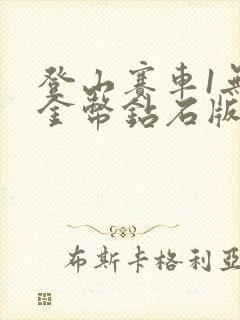 登山賽車1無
金幣鉆石版
布斯卡格利亞